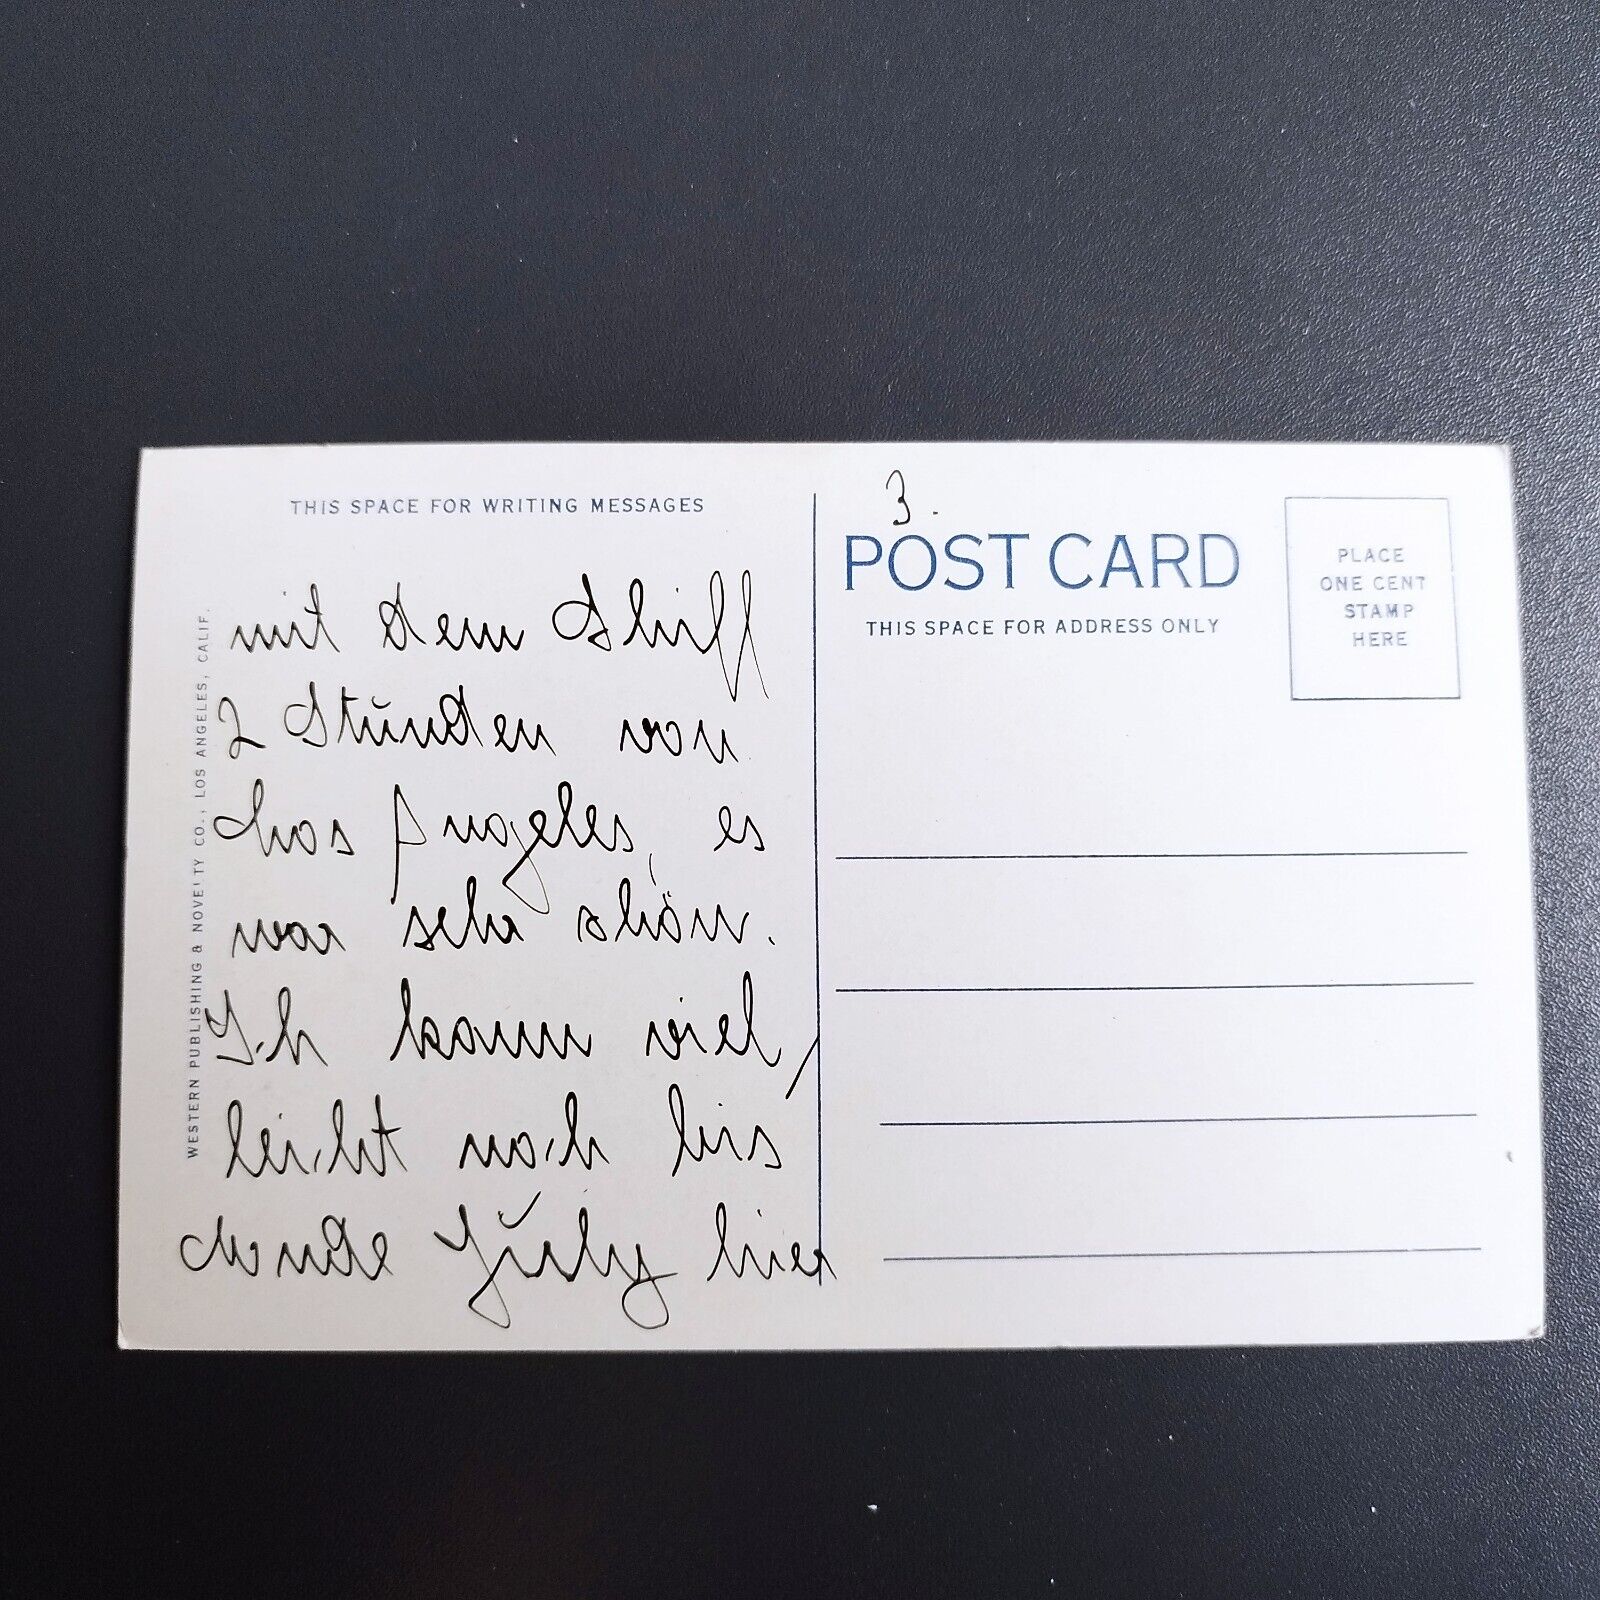 THIS SPACE FOR WRITING MESSAGES
mit dem Schiff
2 Stunden von
Los Angeles, es
war sehr schön.
Ich kann viel/
leicht noch bis
Ende July hier
WESTERN PUBLISHING & NOVELTY CO., LOS ANGELES, CALIF.
3.
POST CARD
THIS SPACE FOR ADDRESS ONLY
PLACE
ONE CENT
STAMP
HERE